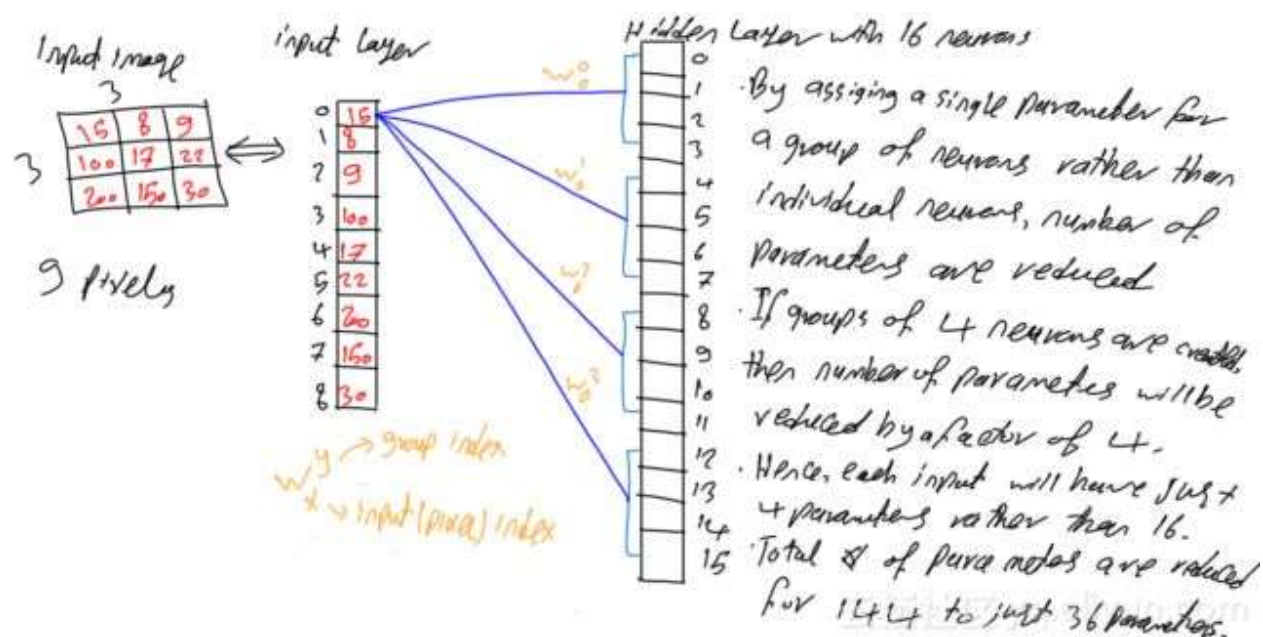 Input image
3
3
15 8 9
100 17 22
200 150 30
9 pixels
input layer
0 15
1 8
2 9
3 100
4 17
5 22
6 200
7 150
8 30
w y → group index
x → input (pixel) index
w 0 0
w 1 0
w 2 0
w 3 0
Hidden Layer with 16 neurons
0
1
2
3
4
5
6
7
8
9
10
11
12
13
14
15
. By assiging a single parameter for
a group of neurons rather than
individual neurons, number of
parameters are reduced
. If groups of 4 neurons are created,
then number of parameters will be
reduced by a factor of 4.
. Hence, each input will have just
4 parameters rather than 16.
. Total # of parameters are reduced
for 144 to just 36 parameters.